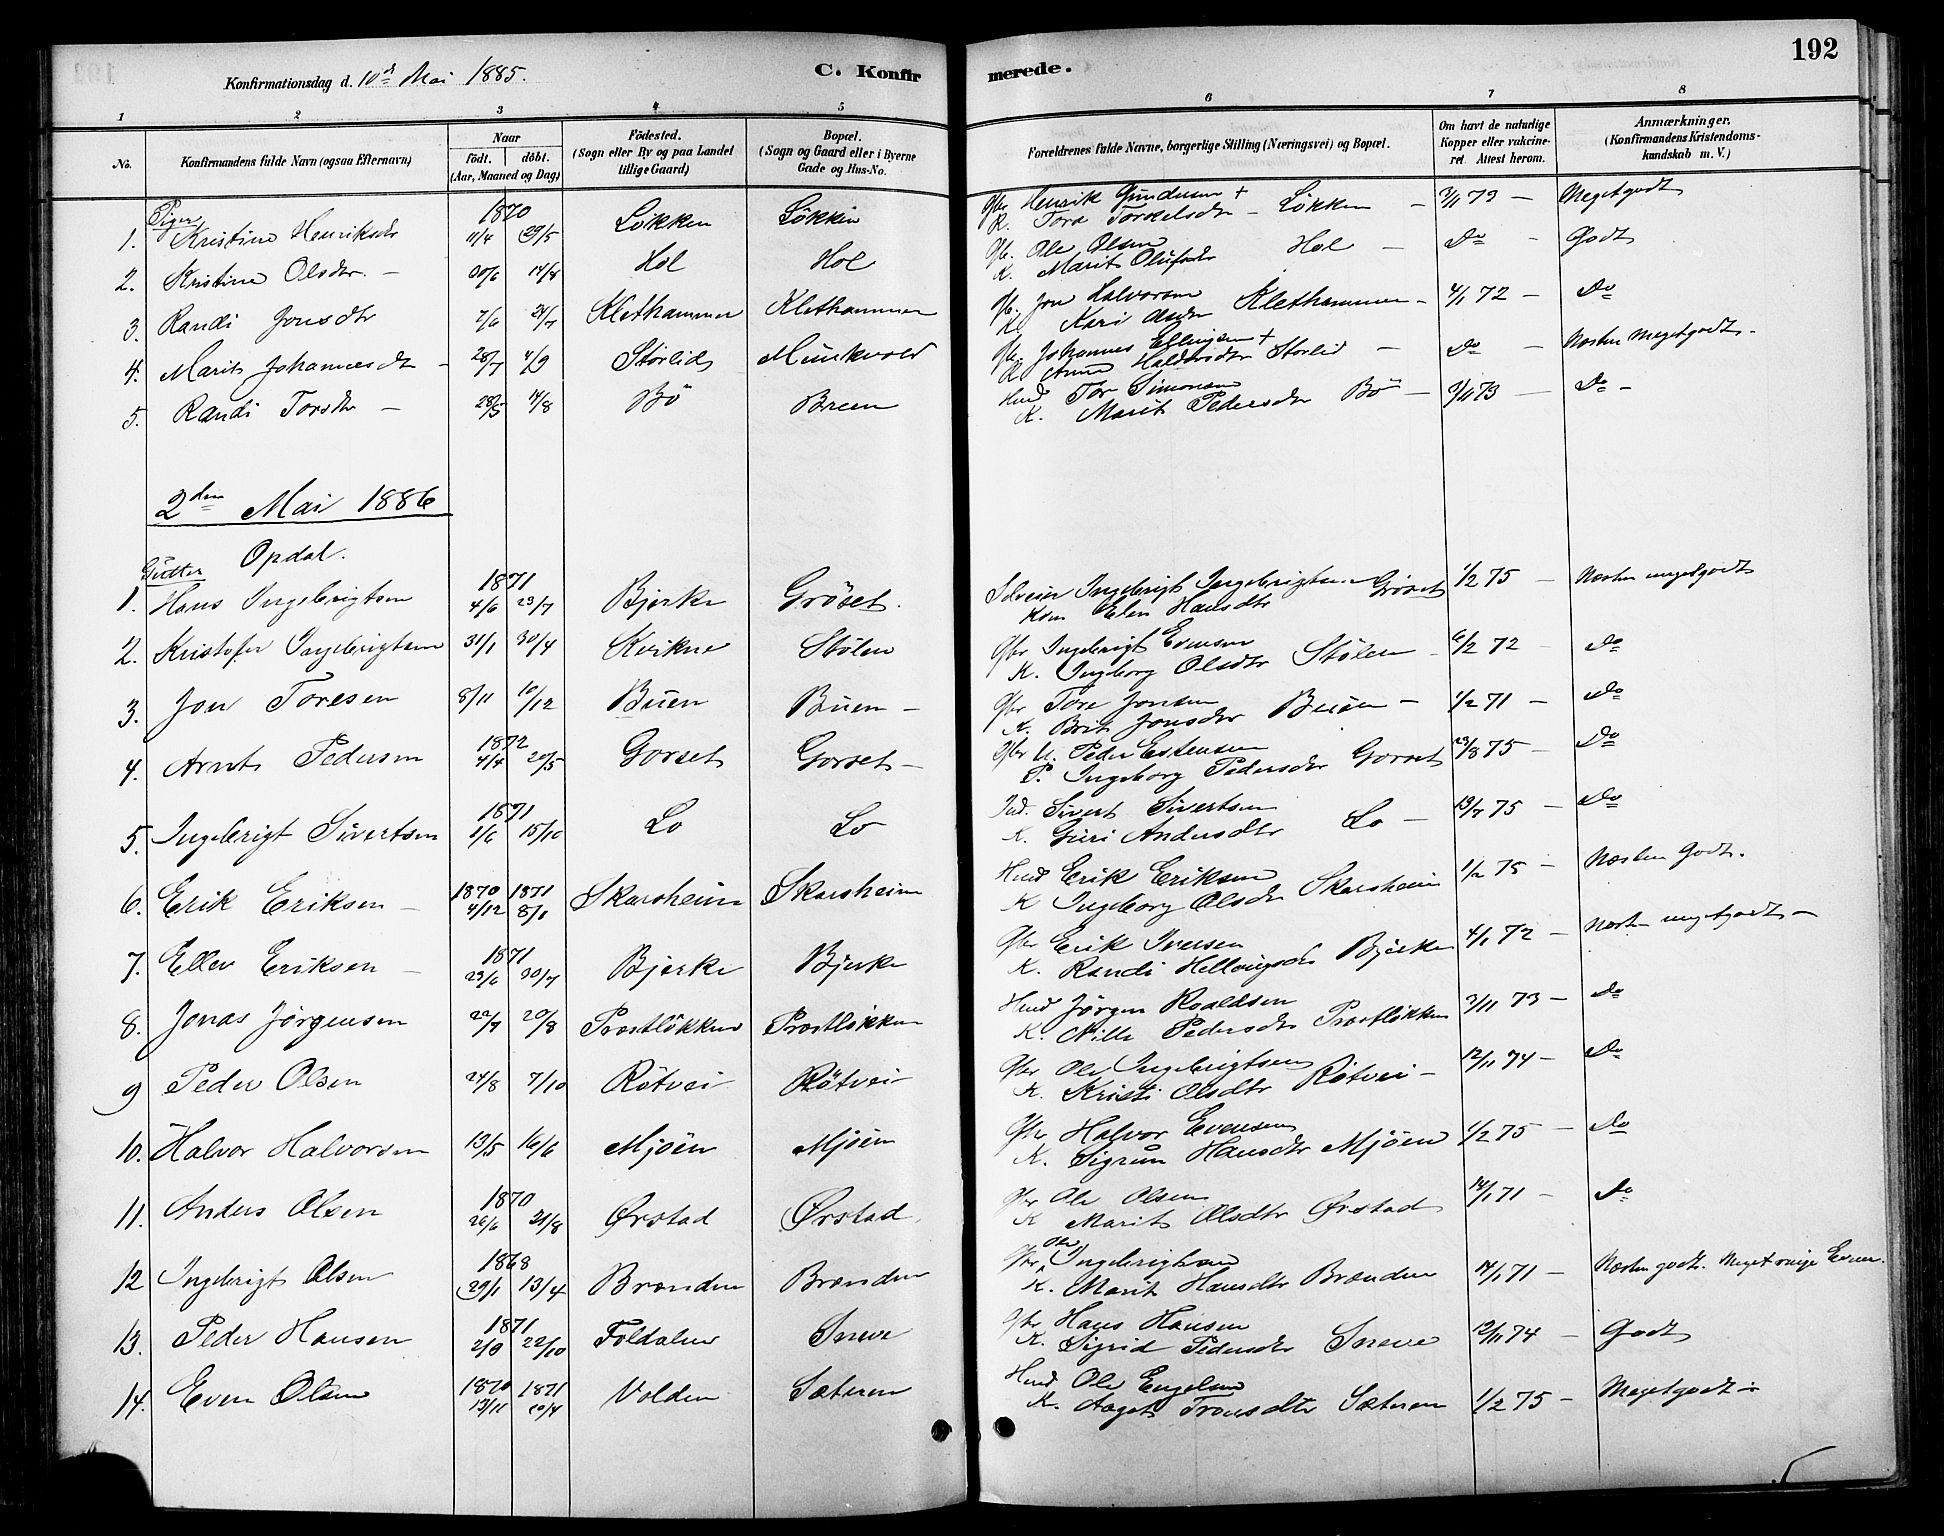 192
Konfirmationsdag d. 10de Mai 1885.
C. Konfirmerede.
1 2 3 4 5 6 7 8
No.
Konfirmandens fulde Navn (ogsaa Efternavn)
Naar
födt. döbt.
(Aar, Maaned og Dag)
Födested.
(Sogn eller By og paa Landet
tillige Gaard)
Bopæl.
(Sogn og Gaard eller i Byerne
Gade og Hus-No.
Forældrenes fulde Navne, borgerlige Stilling (Næringsvei) og Bopæl.
Om havt de naturlige
Kopper eller vakcine-
ret. Attest herom.
Anmærkninger.
(Konfirmandens Kristendoms-
kundskab m. V.)
Piger 1870
1. Kristine Henriksdr 11/4 29/5 Løkken Løkken Gbr Henrik Gundersen + K. Tore Torkelsdr - Løkken - 3/11 73 - Meget godt
2. Kristine Olsdr. - 30/6 14/8 Hol Hol Gb. Ole Olsen K. Marit Olufsdr Hol - Do - Godt
3. Randi Jonsdtr 7/6 24/7 Klethammer Klethammer Gb. Jon Halvorsen K. Kari Olsdr Klethammer - 4/1 72 - Do
4. Marit Johannesdt - 28/7 4/9 Storlid Munkvold Gb. Johannes Ellingsen + K. Anne Haldosdtr Storlid - Do - Næsten Megetgodt -
5. Randi Torsdtr - 28/5 14/8 Bö Breen Husd Tor Simonsen K. Marit Pedersdtr Bö - 3/11 73 - Do -
2den Mai 1886
Opdal.
Gutter 1871
1. Hans Ingebrigtsen 4/6 23/7 Bjerke Gröset. Selveier Ingebrigt Ingebrigtsen Gröset Kone Elen Hansdtr 1/2 75 - Næsten megetgodt
2. Kristofer Ingebrigtsen 31/1 30/4 Kvikne Stølen Gbr Ingebrigt Evensen K. Ingeborg Olsdtr Stølen 6/2 72 - Do
3. Jon Toresen 8/11 10/12 Buen Buen - Gbr Tore Jonsen K. Brit Jonsdtr Buen - 1/2 71 - Do
1872
4. Arnt Pedersen 4/4 20/5 Gorset Gorset - Gbr U. Peder Estensen P. Ingeborg Pedersdtr Gorset 23/8 75 - Do
1871
5. Ingebrigt Sivertsen 1/6 15/10 Lo Lo Ind. Sivert Sivertsen K. Guri Andersdtr Lo - 13/7 75 - Do
1870 1871
6. Erik Eriksen - 4/12 8/1 Skarsheim Skarsheim Husd Erik Eriksen K Ingeborg Olsdr Skarsheim 1/2 75 - Næsten Godt.
1871
7. Ellev Eriksen - 23/6 30/7 Bjerke Bjerke Gbr Erik Iversen K. Randi Hellingsdr Bjerke 4/1 72 - Næsten megetgodt -
8. Jonas Jørgensen 22/7 20/8 Prostløkken Prostløkken Husd Jørgen Roaldsen K. Nille Pedersdtr Prostløkken 3/11 73 - Do
9 Peder Olsen 24/8 7/10 Rötvei Rötvei Gbr Ole Ingebrigtsen K. Kristi Olsdtr Rötvei - 12/11 74 - Do
10. Halvor Halvorsen 13/5 16/6 Mjöen Mjöen Gbr Halvor Evensen K. Sigrun Hansdtr Mjöen 1/2 75 - Do
1870
11. Anders Olsen 26/6 21/8 Ørstad Ørstad. Gbr Ole Olsen K Marit Olsdtr Ørstad 14/1 71 - Do
1868
12 Ingebrigt Olsen 29/1 13/4 Brænden Brænden Gbr Ole Ingebrigtsen K. Marit Hansdtr Brænden 14/1 71 - Næsten godt. Meget ringe Evner.
1871
13. Peder Hansen 2/9 22/10 Foldalen Sneve Gbr Hans Hansen K. Sigrid Pedersdtr Sneve 12/11 74 - Godt
1870 1871
14. Even Olsen 13/11 10/4 Volden Sæteren Husd Ole Engelsen K. Aagot Tronsdtr Sæteren 1/2 75 - Megetgodt -